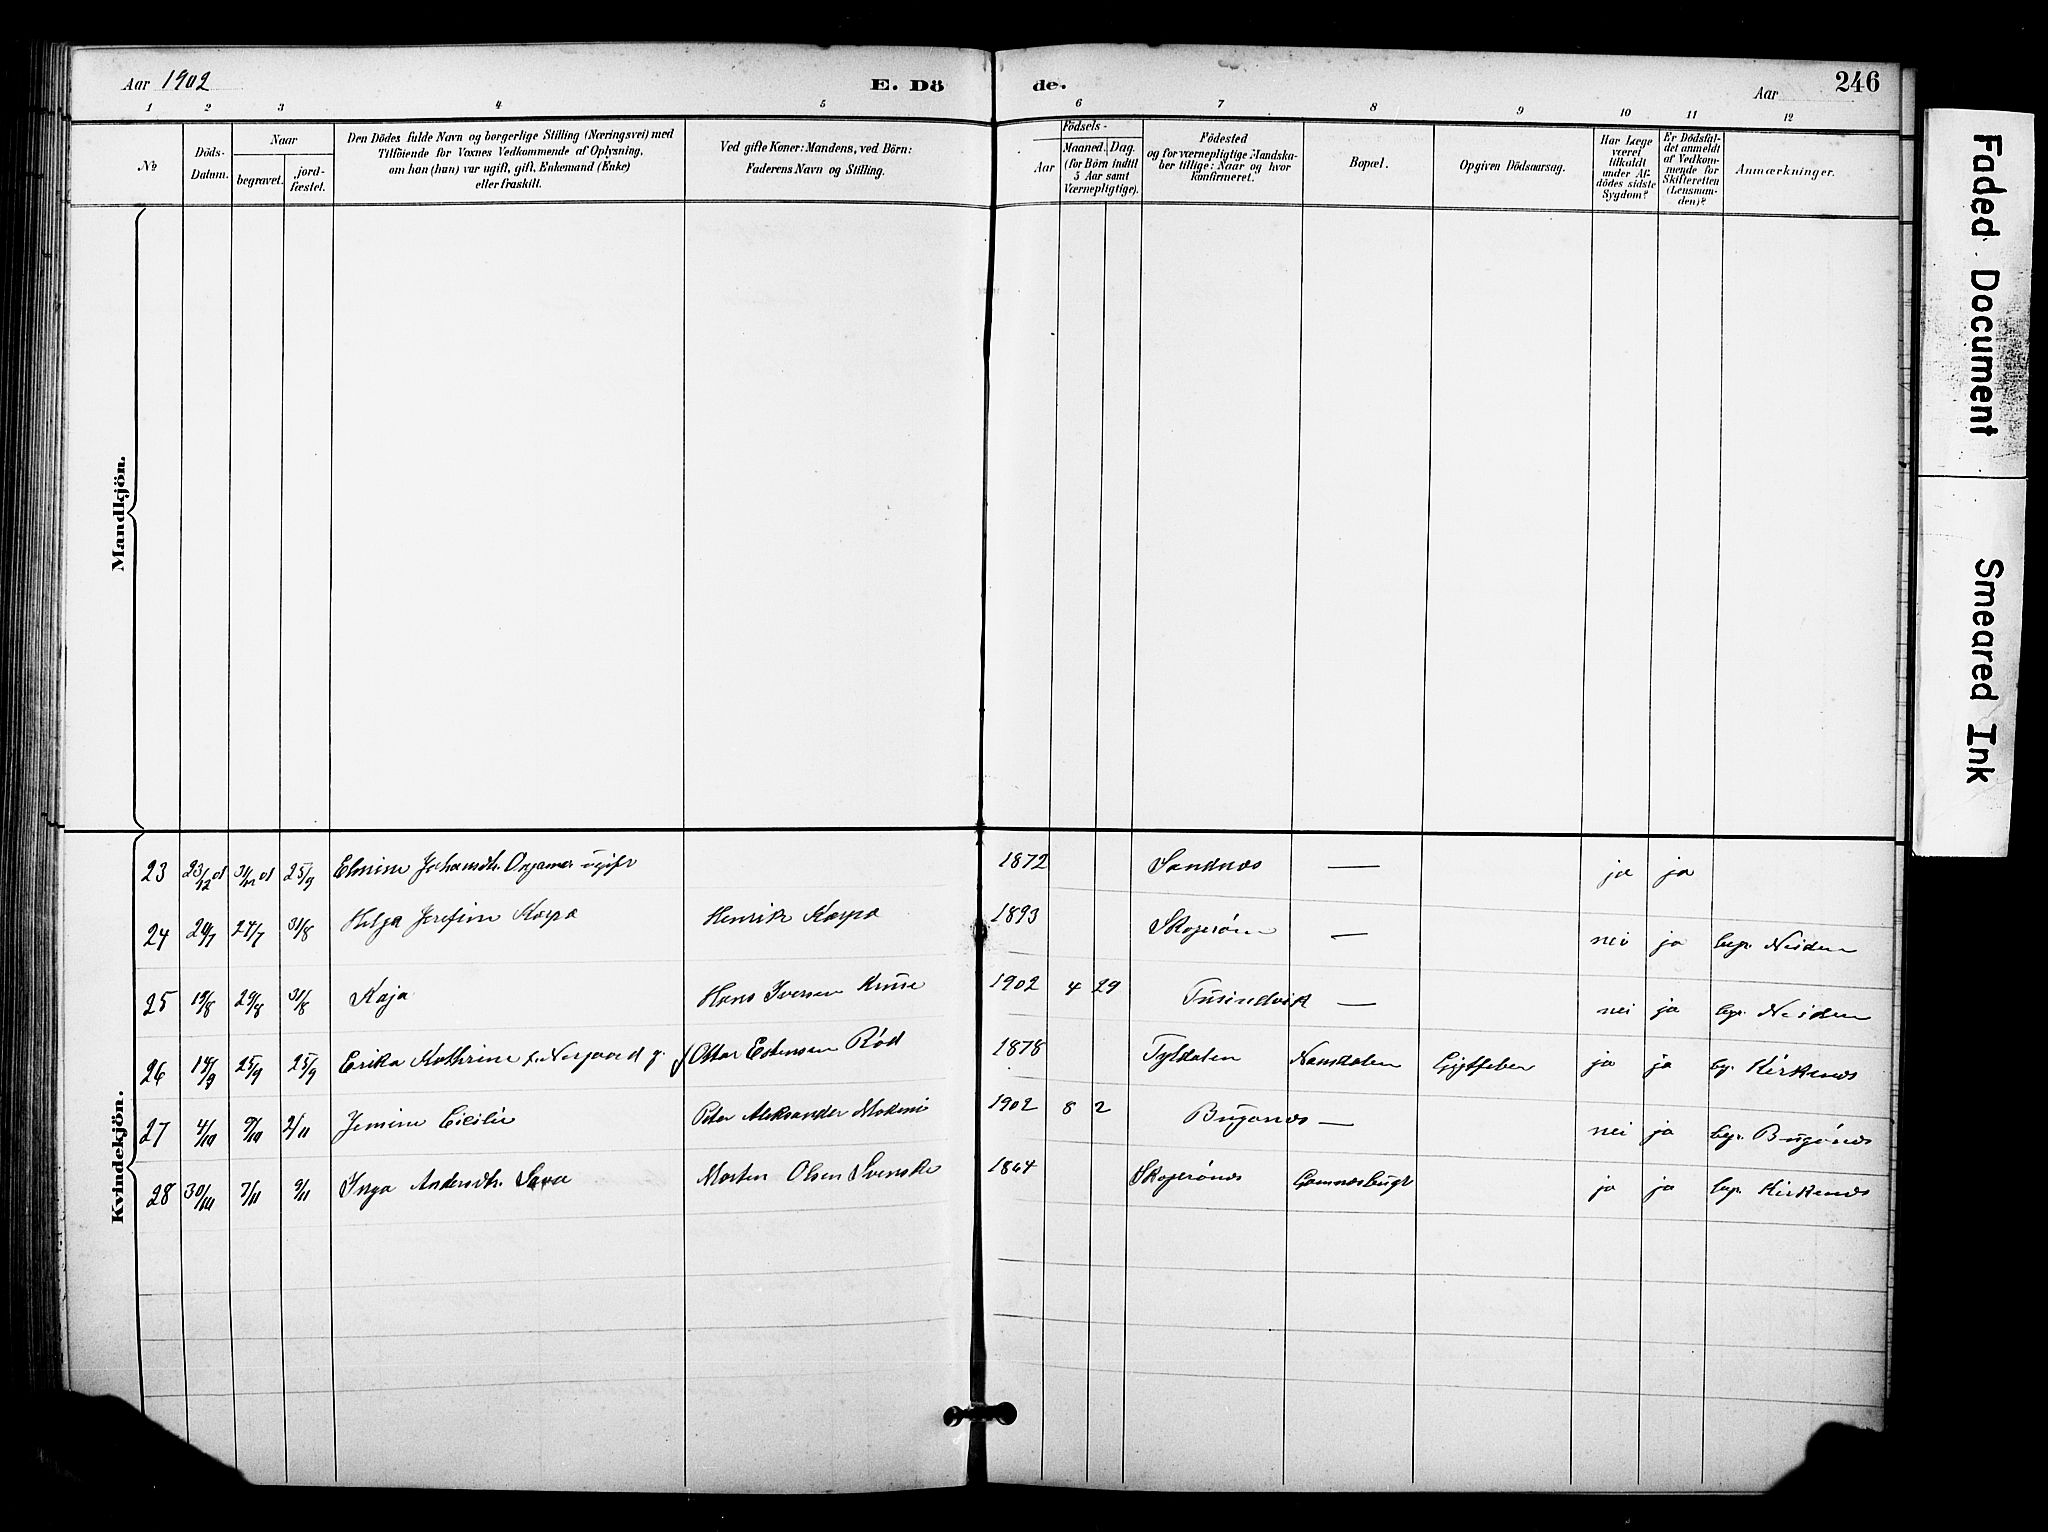 Aar 1902
E. Dö
de.
Aar
246
1 2 3 4 5 6 7 8 9 10 11 12
No
Döds-
Datum.
Naar
begravet.
jord-
fæstet.
Den Dödes fulde Navn og borgerlige Stilling (Næringsvei) med
Tilföiende for Voxnes Vedkommende af Oplysning,
om han (hun) var ugift, gift, Enkemand (Enke)
eller fraskilt.
Ved gifte Koner: Mandens, ved Börn:
Faderens Navn og Stilling.
Födsels-
Aar
Maaned. Dag.
(for Börn indtil
5 Aar samt
Værnepligtige).
Födested
og for værnepligtige Mandska-
ber tillige: Naar og hvor
konfirmeret.
Bopæl.
Opgiven Dödsaarsag.
Har Læge
været
tilkaldt
under Af-
dödes sidste
Sygdom?
Er Dödsfal-
det anmeldt
af Vedkom-
mende for
Skifteretten
(Lensman-
den)?
Anmærkninger.
Mandkjön.
Kvindekjön.
23 23/12 01 31/12 01 25/9 Elmine Johansdtr. ugift 1872 Sandnæs — ja ja
24 20/7 27/7 31/8 Helga Josefine Karpa Henrik Karpa 1893 Skogerøen — nei ja begr. Neiden
25 19/8 29/8 31/8 Kaja Hans Iversen Kruse 1902 4 29 Tusindvik — nei ja begr. Neiden
26 19/9 25/9 25/9 Erika Kathrine f. Nergaard g. Ottar Estensen Rød 1878 Tyldalen Namdalen Gigtfeber ja ja bg. Kirkenæs
27 4/10 9/10 2/11 Jemine Cicilie Peter Aleksander Mokeni 1902 8 2 Bugønæs — nei ja begr. Bugönæs
28 30/10 7/11 9/11 Inga Andersdtr. Sara Morten Olsen Svenske 1864 Skogerønæs Gamnæsbugt ja ja begr. Kirkenæs
Faded Document
Smeared Ink